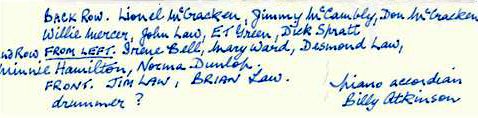 BACK ROW. Lionel McCracken, Jimmy McCambly, Don McCracken
Willie Mercer, John Law, E.T Green, Dick Spratt
nd Row FROM LEFT. Irene Bell, Mary Ward, Desmond Law,
Minnie Hamilton, Norma Dunlop.
FRONT. JIM LAW, BRIAN Law.
drummer ?
piano accordian
Billy Atkinson